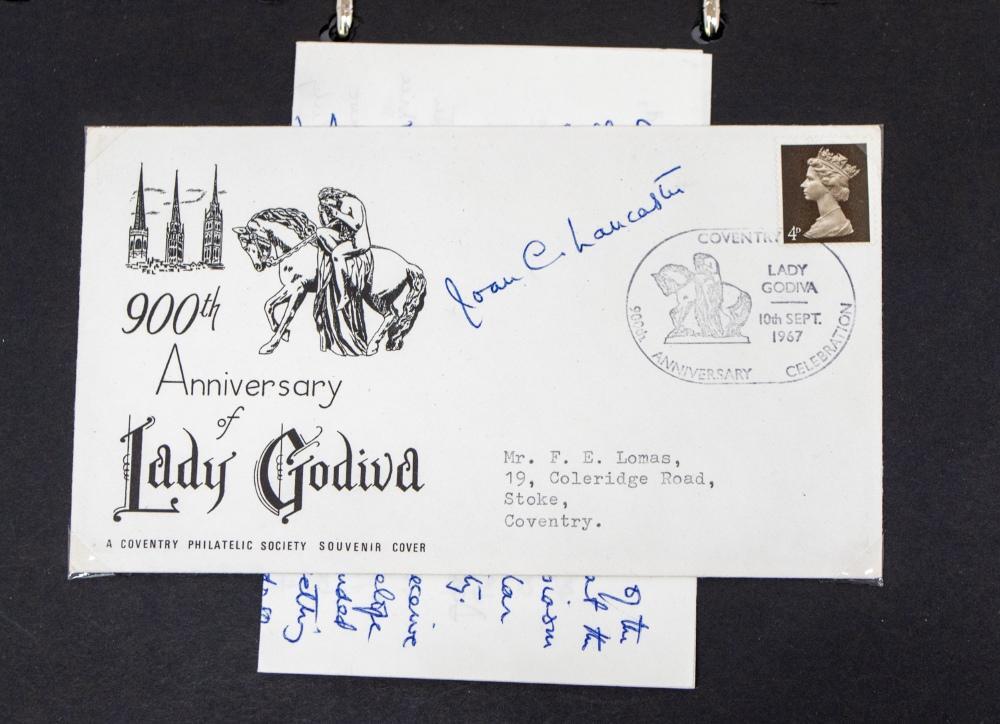 900th
Anniversary
of
Lady Godiva
A COVENTRY PHILATELIC SOCIETY SOUVENIR COVER
Joan C. Lancaster
4P
COVENTRY
LADY
GODIVA
10th SEPT.
1967
900th ANNIVERSARY CELEBRATION
Mr. F. E. Lomas,
19, Coleridge Road,
Stoke,
Coventry.
of the
the
eceive